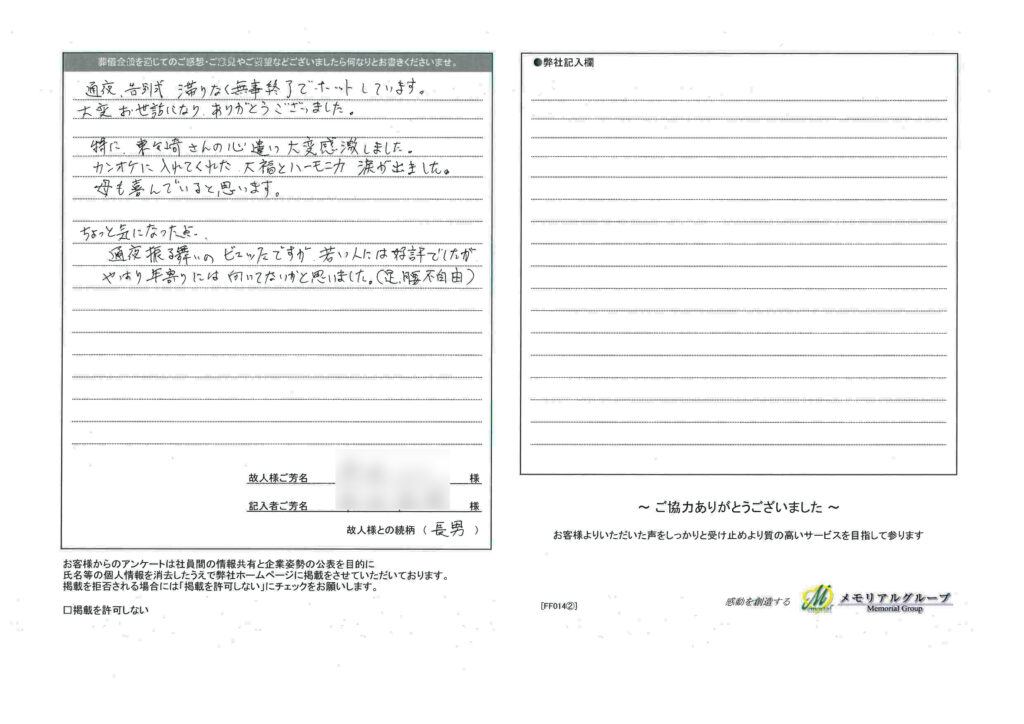 葬儀全般を通じてのご感想・ご意見やご要望などございましたら何なりとお書きくださいませ。
通夜、告別式 滞りなく無事終了でホットしています。
大変お世話になり、ありがとうございました。
特に、東 崎さんの心遣い大変感激しました。
カンオケに入れてくれた、大福とハーモニカ 涙が出ました。
母も喜んでいると思います。
ちょっと気になった点、
通夜振る舞いの ビュッフェですが、若い人には好評でしたが
やはり年寄りには向いてないかと思いました。(足、腰不自由)
故人様ご芳名 様
記入者ご芳名 様
故人様との続柄 ( 長男 )
お客様からのアンケートは社員間の情報共有と企業姿勢の公表を目的に
氏名等の個人情報を消去したうえで弊社ホームページに掲載をさせていただいております。
掲載を拒否される場合には「掲載を許可しない」にチェックをお願いします。
□掲載を許可しない
●弊社記入欄
～ ご協力ありがとうございました ～
お客様よりいただいた声をしっかりと受け止めより質の高いサービスを目指して参ります
[FF014②]
感動を創造する
M Memorial
メモリアルグループ
Memorial Group